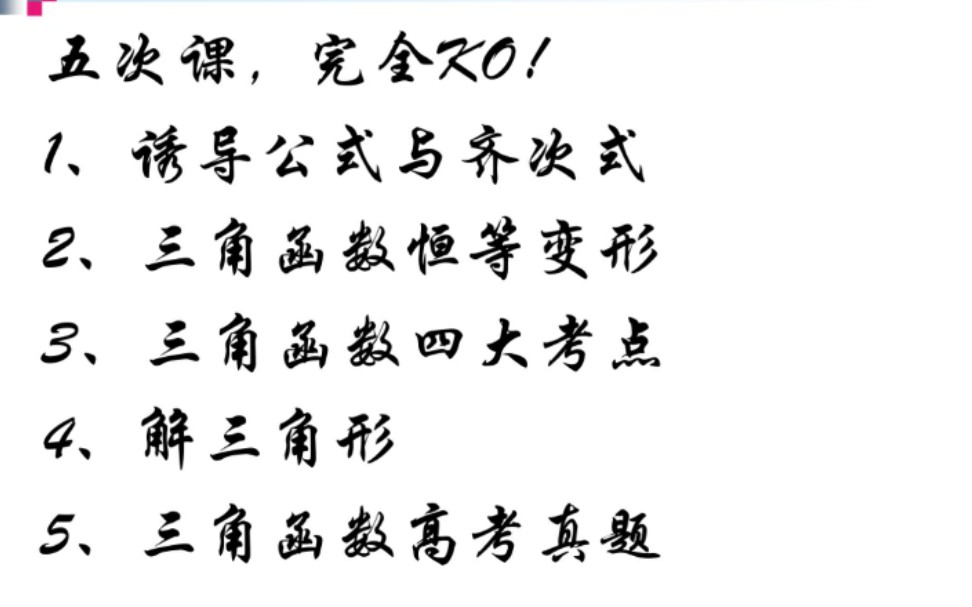 五次课，完全KO！
1、诱导公式与齐次式
2、三角函数恒等变形
3、三角函数四大考点
4、解三角形
5、三角函数高考真题